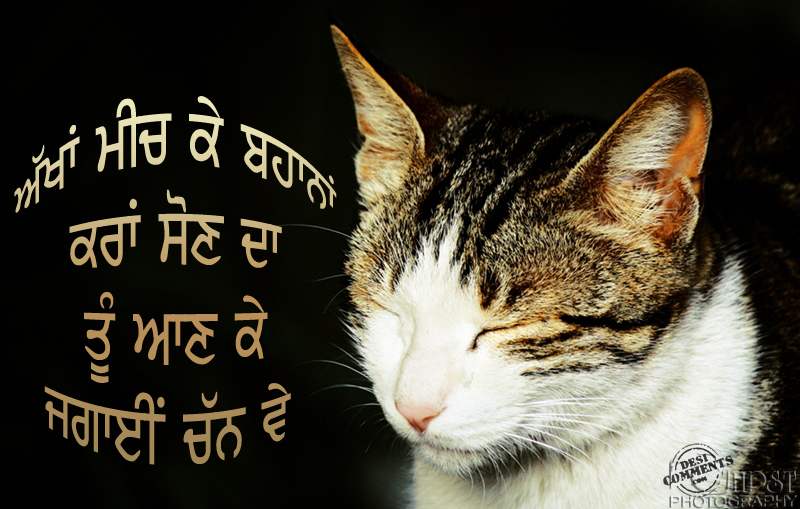 ਅੱਖਾਂ ਮੀਚ ਕੇ ਬਹਾਨਾਂ
ਕਰਾਂ ਸੌਣ ਦਾ
ਤੂੰ ਆਣ ਕੇ
ਜਗਾਈਂ ਚੱਨ ਵੇ
DESI
COMMENTS
.com
HDST
PHOTOGRAPHY